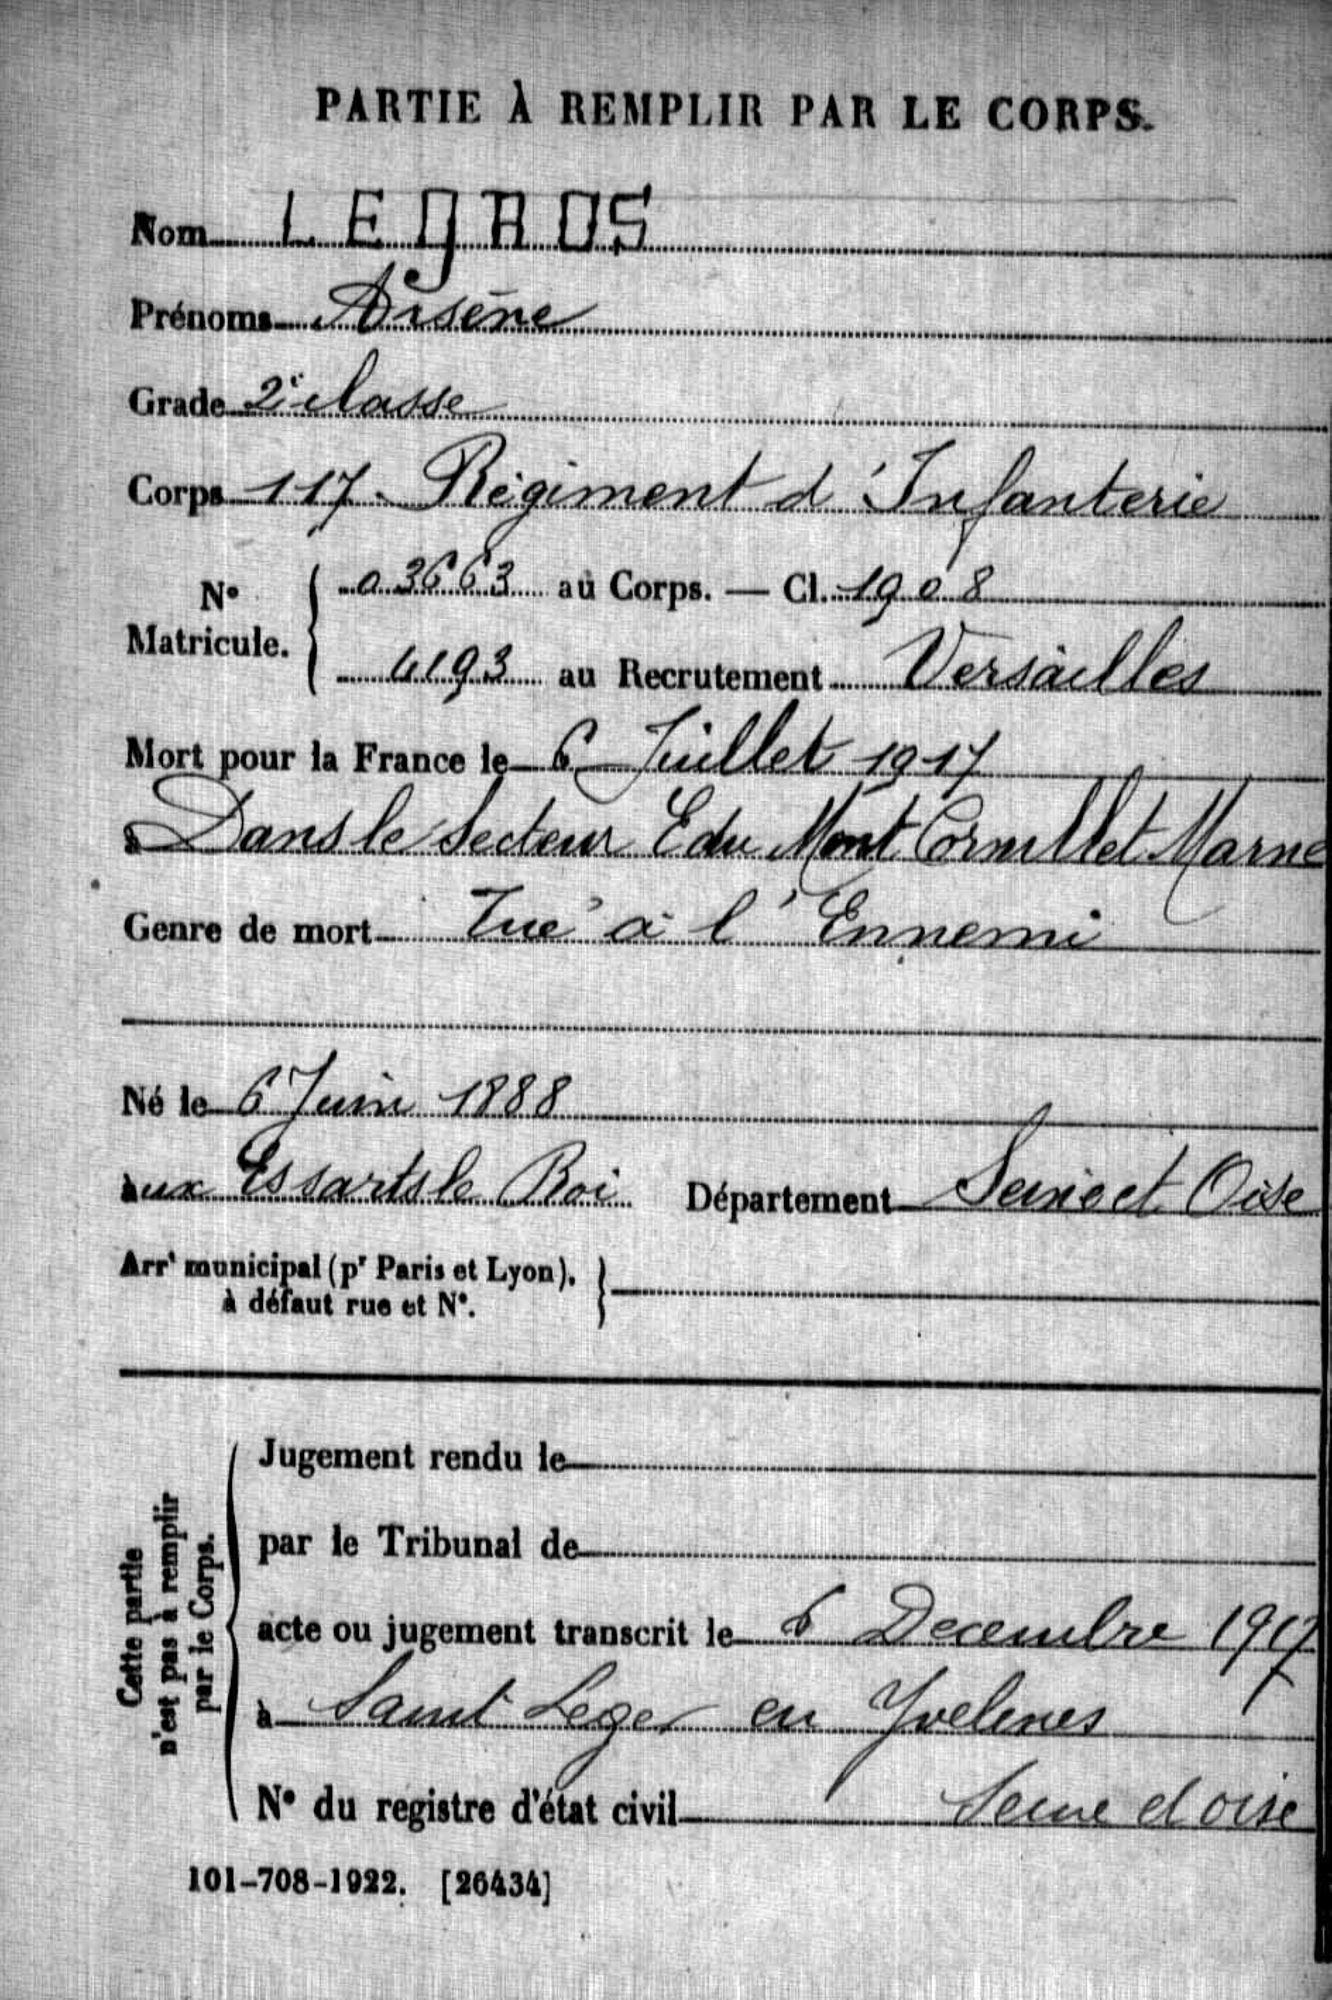 PARTIE À REMPLIR PAR LE CORPS.
Nom LEGROS
Prénoms Arsène
Grade 2e classe
Corps 117. Régiment d'Infanterie
No Matricule. 03663 au Corps. — Cl. 1908
4193 au Recrutement Versailles
Mort pour la France le 6 Juillet 1917
à Dans le Secteur E du Mont Cornillet Marne
Genre de mort Tué à l'Ennemi
Né le 6 Juin 1888
aux Essarts le Roi Département Seine et Oise
Arrt municipal (pr Paris et Lyon),
à défaut rue et No.
Cette partie
n'est pas à remplir
par le Corps.
Jugement rendu le
par le Tribunal de
acte ou jugement transcrit le 6 Decembre 1917
à Saint Leger en Yvelines
No du registre d'état civil Seine et oise
101-708-1922. [26434]